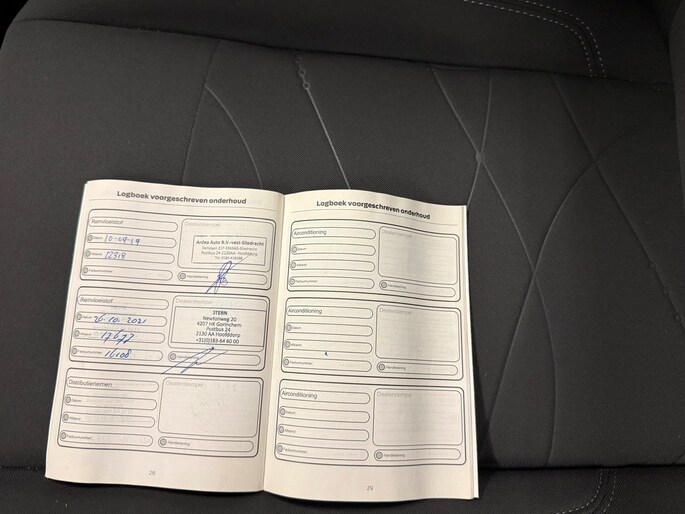 Logboek voorgeschreven onderhoud
Remvloeistof
Dealerstempel
Datum 10-09-19
Ardea Auto B.V.-vest-Sliedrecht
Km/stand 12318
Postbus 24 2130AA Hoofddorp
Factuurnummer
Handtekening
Remvloeistof
Dealerstempel
Datum 26-10-2021
STERN
Newtonweg 20
4207 HK Gorinchem
Postbus 24
2130 AA Hoofddorp
+31(0)183-64 60 00
Factuurnummer 16108
Handtekening
Distributieriemen
Dealerstempel
Datum
Factuurnummer
Handtekening
28
Logboek voorgeschreven onderhoud
Airconditioning
Dealerstempel
Datum
Factuurnummer
Handtekening
Airconditioning
Dealerstempel
Datum
Factuurnummer
Handtekening
Airconditioning
Dealerstempel
Datum
Factuurnummer
Handtekening
29